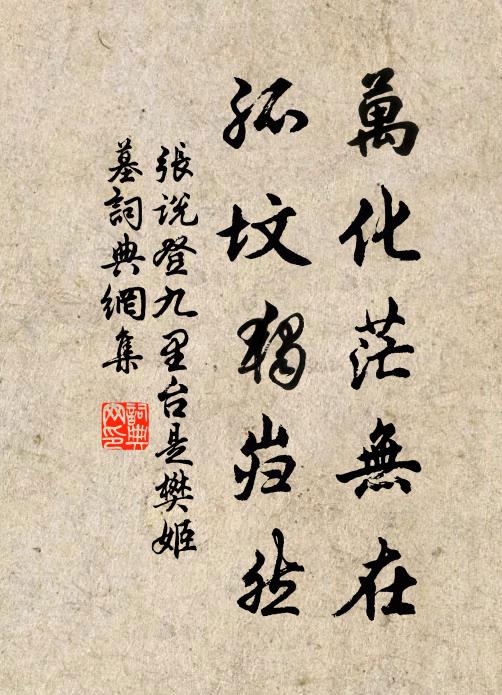 萬化茫無在
孤坟獨岿然
張说登九里台是樊姬
墓詞典網集
詞典
网印